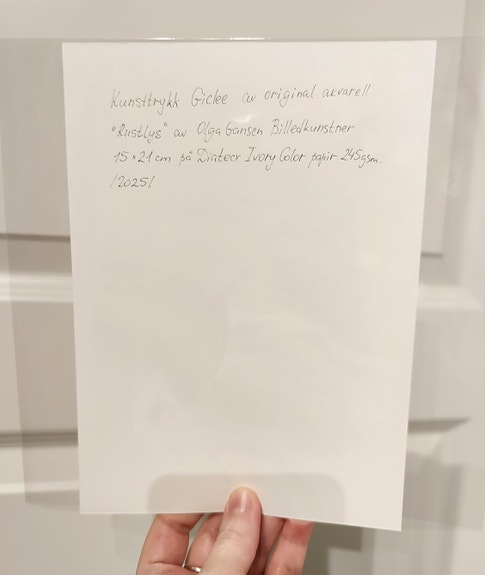 Kunsttrykk Giclee av original akvarell
"Rustlys" av Olga Gansen Billedkunstner
15×21cm på Diatecx Ivory Color papir 245gsm.
/2025/